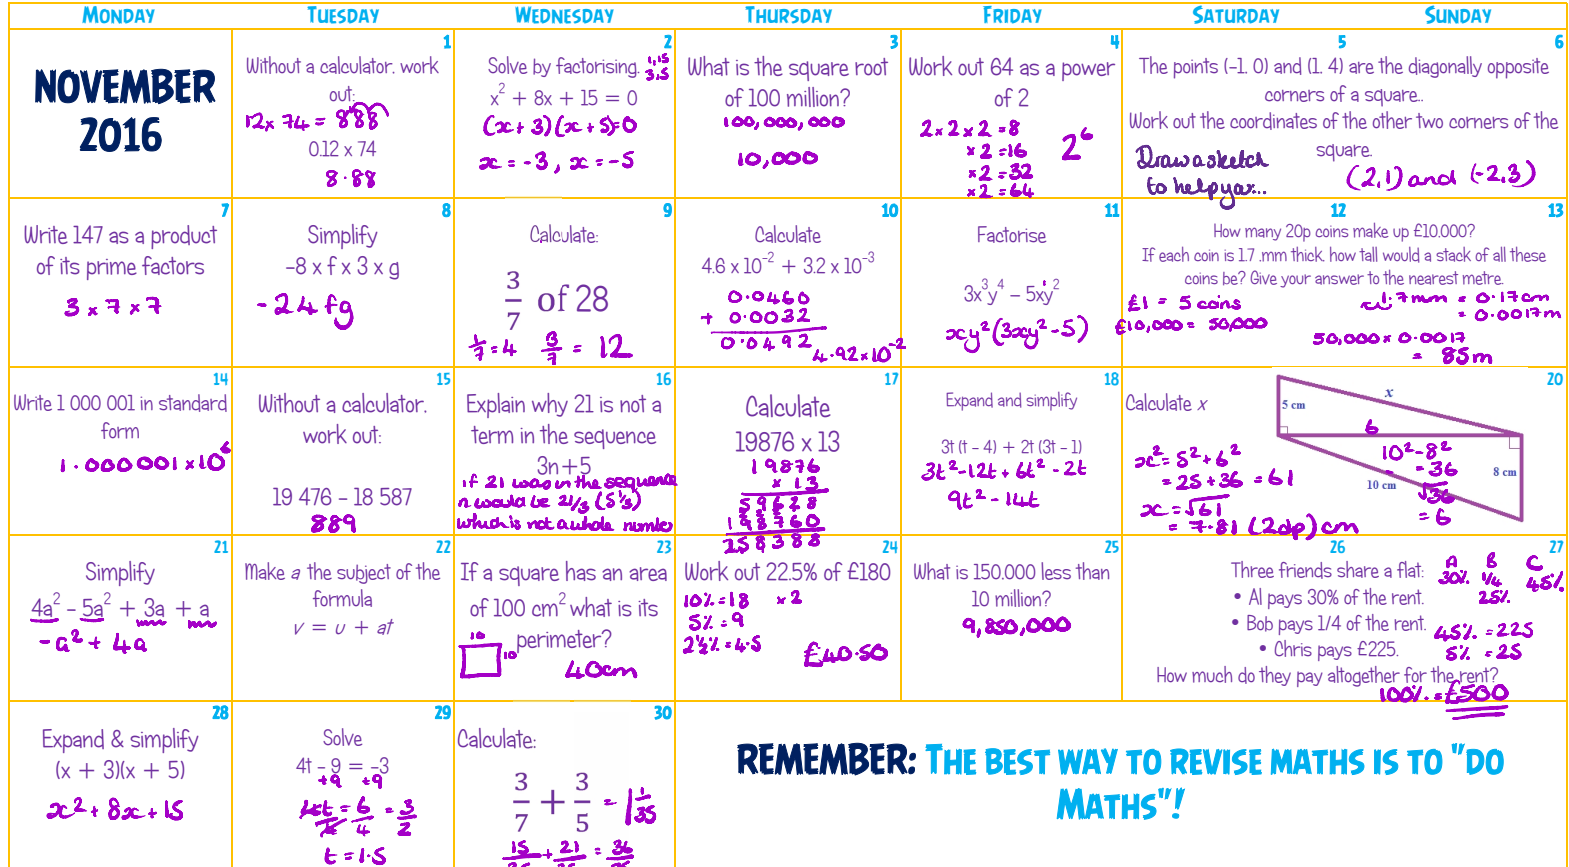 MONDAY TUESDAY WEDNESDAY THURSDAY FRIDAY SATURDAY SUNDAY
NOVEMBER
2016
1
Without a calculator, work
out:
12 x 74 = 888
0.12 x 74
8.88
2
Solve by factorising.
1,15
3,5
x² + 8x + 15 = 0
(x + 3)(x + 5)=0
x = -3, x = -5
3
What is the square root
of 100 million?
100,000,000
10,000
4
Work out 64 as a power
of 2
2 x 2 x 2 = 8
x 2 = 16
x 2 = 32
x 2 = 64
2⁶
5 6
The points (-1, 0) and (1, 4) are the diagonally opposite
corners of a square..
Work out the coordinates of the other two corners of the
square.
Draw a sketch
to help you...
(2,1) and (-2,3)
7
Write 147 as a product
of its prime factors
3 x 7 x 7
8
Simplify
-8 x f x 3 x g
-24fg
9
Calculate:
3/7 of 28
1/7 = 4 3/7 = 12
10
Calculate
4.6 x 10⁻² + 3.2 x 10⁻³
0.0460
+ 0.0032
0.0492
4.92 x 10⁻²
11
Factorise
3x³y⁴ – 5xy²
xy²(3xy² - 5)
12 13
How many 20p coins make up £10,000?
If each coin is 1.7 .mm thick, how tall would a stack of all these
coins be? Give your answer to the nearest metre.
£1 = 5 coins
£10,000 = 50,000
1.7mm = 0.17cm
= 0.0017m
50,000 x 0.0017
= 85m
14
Write 1 000 001 in standard
form
1.000001 x 10⁶
15
Without a calculator,
work out:
19 476 – 18 587
889
16
Explain why 21 is not a
term in the sequence
3n+5
if 21 was in the sequence
n would be 21/3 (5⅓)
which is not a whole number
17
Calculate
19876 x 13
19876
x 13
59628
198760
258388
18
Expand and simplify
3t (t – 4) + 2t (3t – 1)
3t² - 12t + 6t² - 2t
9t² - 14t
20
Calculate x
5 cm
x
6
8 cm
10 cm
10² - 8²
= 36
√36
= 6
x² = 5² + 6²
= 25 + 36 = 61
x = √61
= 7.81 (2dp) cm
21
Simplify
4a² – 5a² + 3a + a
-a² + 4a
22
Make a the subject of the
formula
v = u + at
23
If a square has an area
of 100 cm² what is its
perimeter?
10
10
40cm
24
Work out 22.5% of £180
10% = 18 x 2
5% = 9
2½% = 4.5
£40.50
25
What is 150,000 less than
10 million?
9,850,000
26 27
Three friends share a flat:
• Al pays 30% of the rent.
• Bob pays 1/4 of the rent.
• Chris pays £225.
How much do they pay altogether for the rent?
A B C
30% 1/4 45%
25%
45% = 225
5% = 25
100% = £500
28
Expand & simplify
(x + 3)(x + 5)
x² + 8x + 15
29
Solve
4t – 9 = –3
+9 +9
4t/4 = 6/4 = 3/2
t = 1.5
30
Calculate:
3/7 + 3/5 = 1 1/35
15/35 + 21/35 = 36/35
REMEMBER: THE BEST WAY TO REVISE MATHS IS TO "DO
MATHS"!